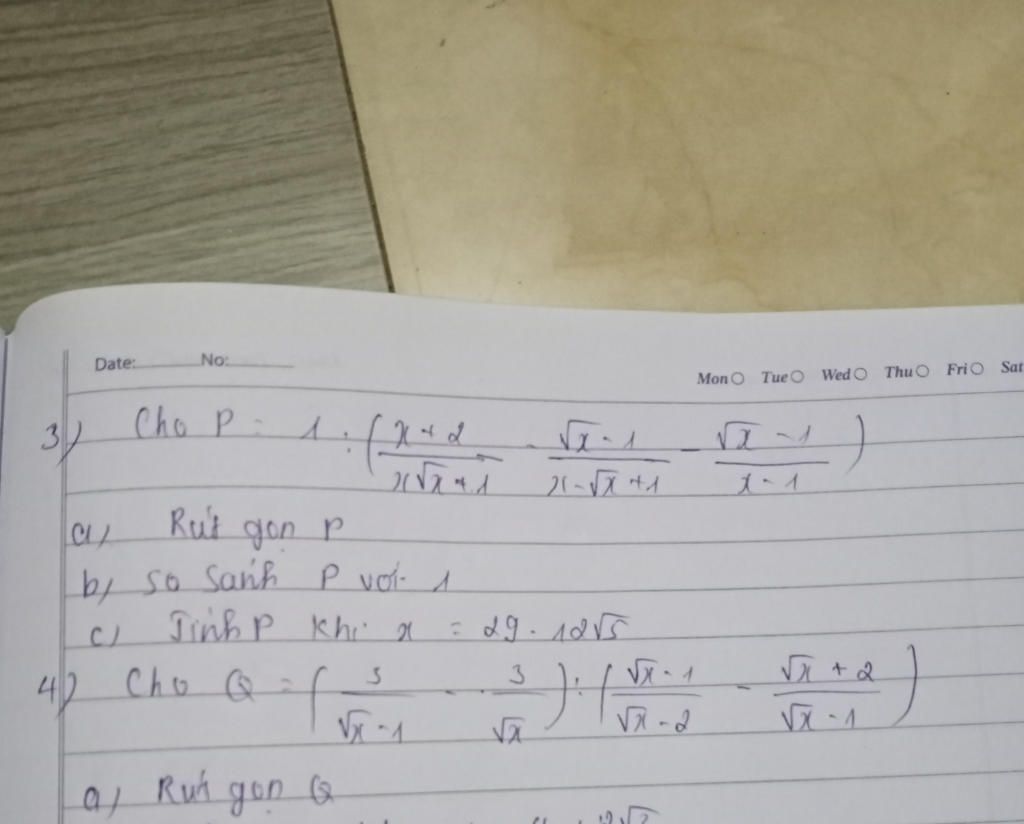 Date: No:
Mon Tue Wed Thu Fri Sat
3) Cho P = 1 : ( x + 2 / x√x + 1 - √x - 1 / x - √x + 1 - √x - 1 / x - 1 )
a) Rút gọn P
b) So sánh P với 1
c) Tính P khi x = 29 - 12√5
4) Cho Q = ( 3 / √x - 1 - 3 / √x ) : ( √x - 1 / √x - 2 - √x + 2 / √x - 1 )
a) Rút gọn Q